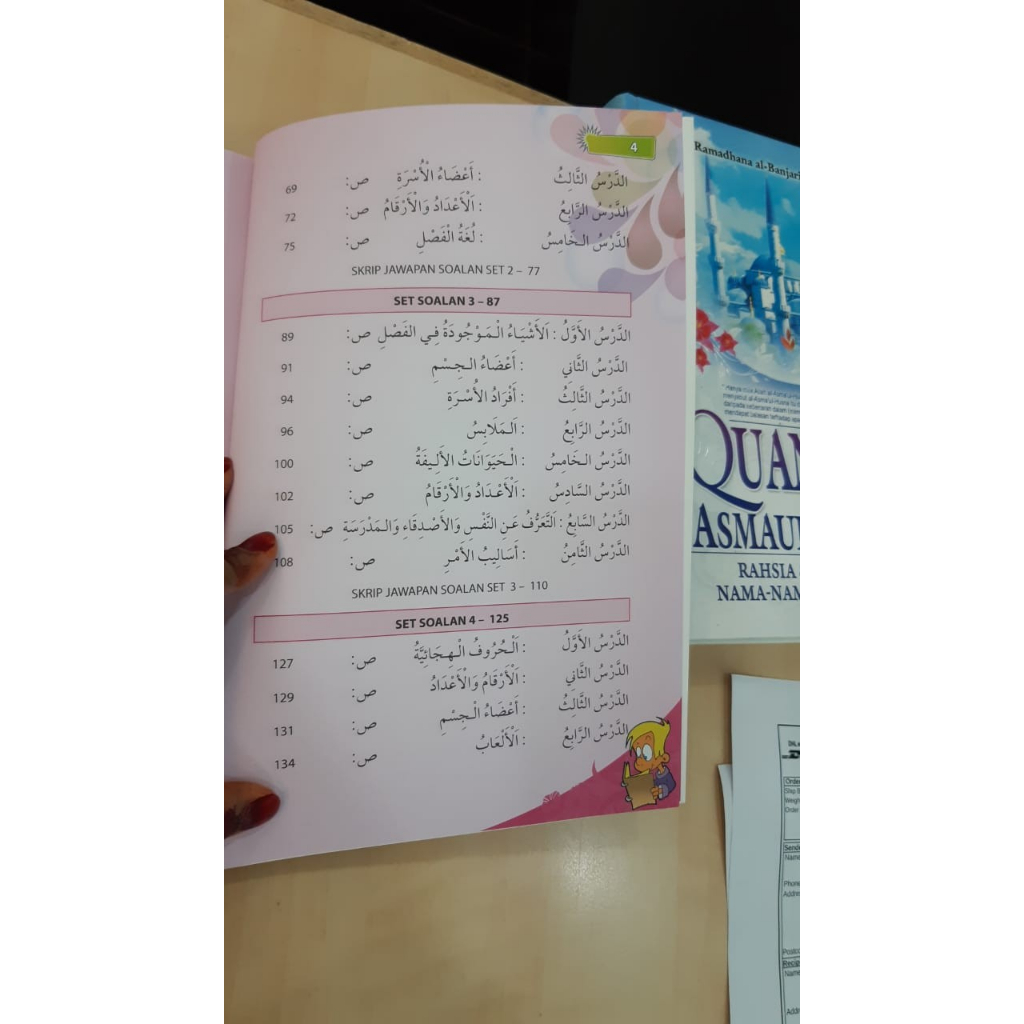 4
الدَّرْسُ الثَّالِثُ : أَعْضَاءُ الْأُسْرَةِ ص: 69
الدَّرْسُ الرَّابِعُ : اَلْأَعْدَادُ وَالْأَرْقَامُ ص: 72
الدَّرْسُ الـخَامِسُ : لُغَةُ الْفَصْلِ ص: 75
SKRIP JAWAPAN SOALAN SET 2 – 77
SET SOALAN 3 – 87
الدَّرْسُ الأَوَّلُ : اَلأَشْيَاءُ الْـمَوْجُودَةُ فِـي الفَصْلِ ص: 89
الدَّرْسُ الثَّانِي : أَعْضَاءُ الـجِسْمِ ص: 91
الدَّرْسُ الثَّالِثُ : أَفْرَادُ الأُسْرَةِ ص: 94
الدَّرْسُ الرَّابِعُ : اَلـمَلَابِسُ ص: 96
الدَّرْسُ الـخَامِسُ : الْـحَيَوَانَاتُ الأَلِـيفَةُ ص: 100
الدَّرْسُ السَّادِسُ : اَلْأَعْدَادُ وَالْأَرْقَامُ ص: 102
الدَّرْسُ السَّابِعُ : اَلتَّعَرُّفُ عَنِ النَّفْسِ وَالأَصْدِقَاءِ وَالـمَدْرَسَةِ ص: 105
الدَّرْسُ الثَّامِنُ : أَسَالِيبُ الأَمْرِ ص: 108
SKRIP JAWAPAN SOALAN SET 3 – 110
SET SOALAN 4 – 125
الدَّرْسُ الأَوَّلُ : اَلْـحُرُوفُ الْـهِجَائِيَّةُ ص: 127
الدَّرْسُ الثَّانِي : اَلْأَرْقَامُ وَالْأَعْدَادُ ص: 129
الدَّرْسُ الثَّالِثُ : أَعْضَاءُ الْـجِسْمِ ص: 131
الدَّرْسُ الرَّابِعُ : اَلْأَلْعَابُ ص: 134
Ramadhana al-Banjari
QUAN
ASMAU
RAHSIA
NAMA-NAM